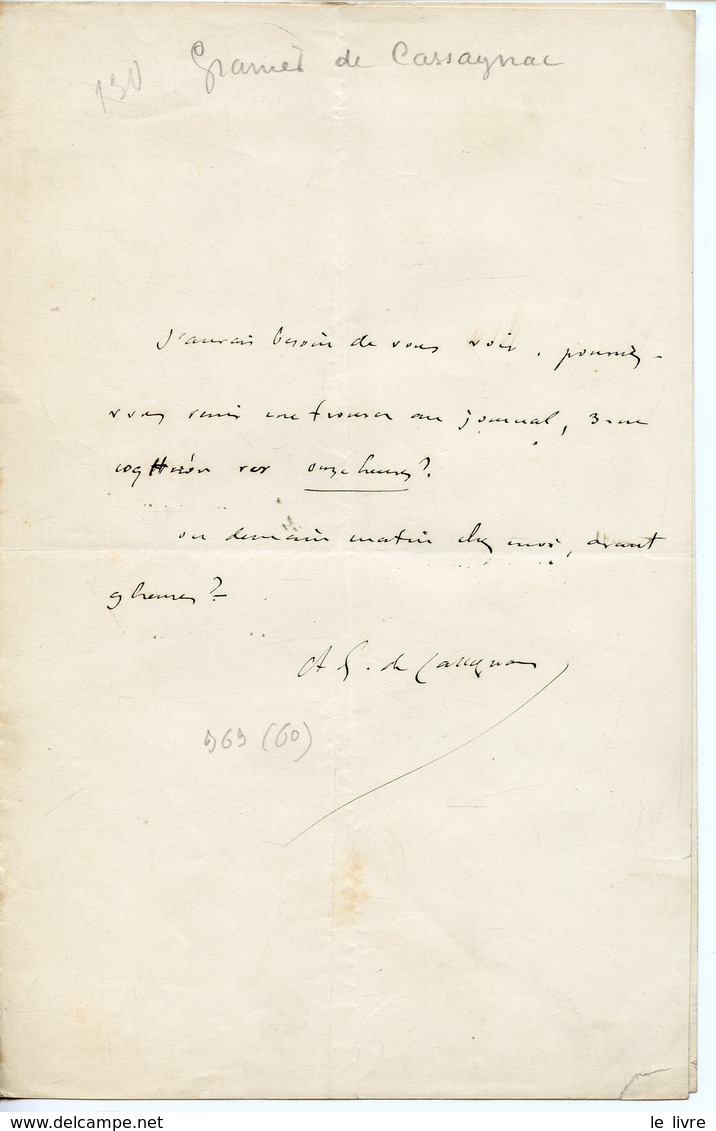 130 Granier de Cassagnac
J'aurais besoin de vous voir. pourriez-
vous venir me trouver au journal, 3 rue
coq héron vers onze heures?
ou demain matin chez moi, avant
9 heures?
A G. de Cassagnac
969 (60)
le livre